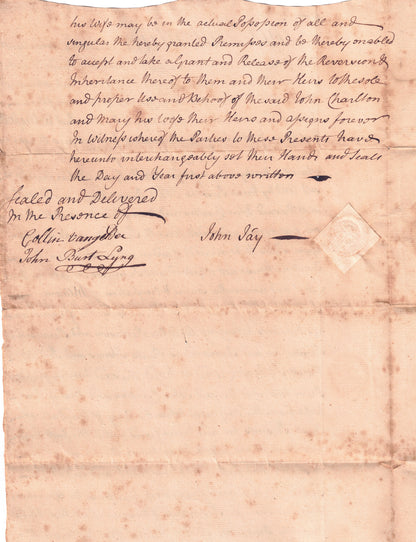 his wife may be in the actual Possession of all and
singular the hereby granted Premisses and be thereby enabled
to accept and take a Grant and Release of the Reversion &
Inheritance thereof to them and their Heirs to the sole
and proper Use and Behoof of the said John Charlton
and Mary his wife their Heirs and assigns forever
In Witness whereof the Parties to these Presents have
hereunto interchangeably set their Hands and Seals
the Day and Year first above written
Sealed and Delivered
In the Presence of
Collin
John Burt Lyng
John Jay